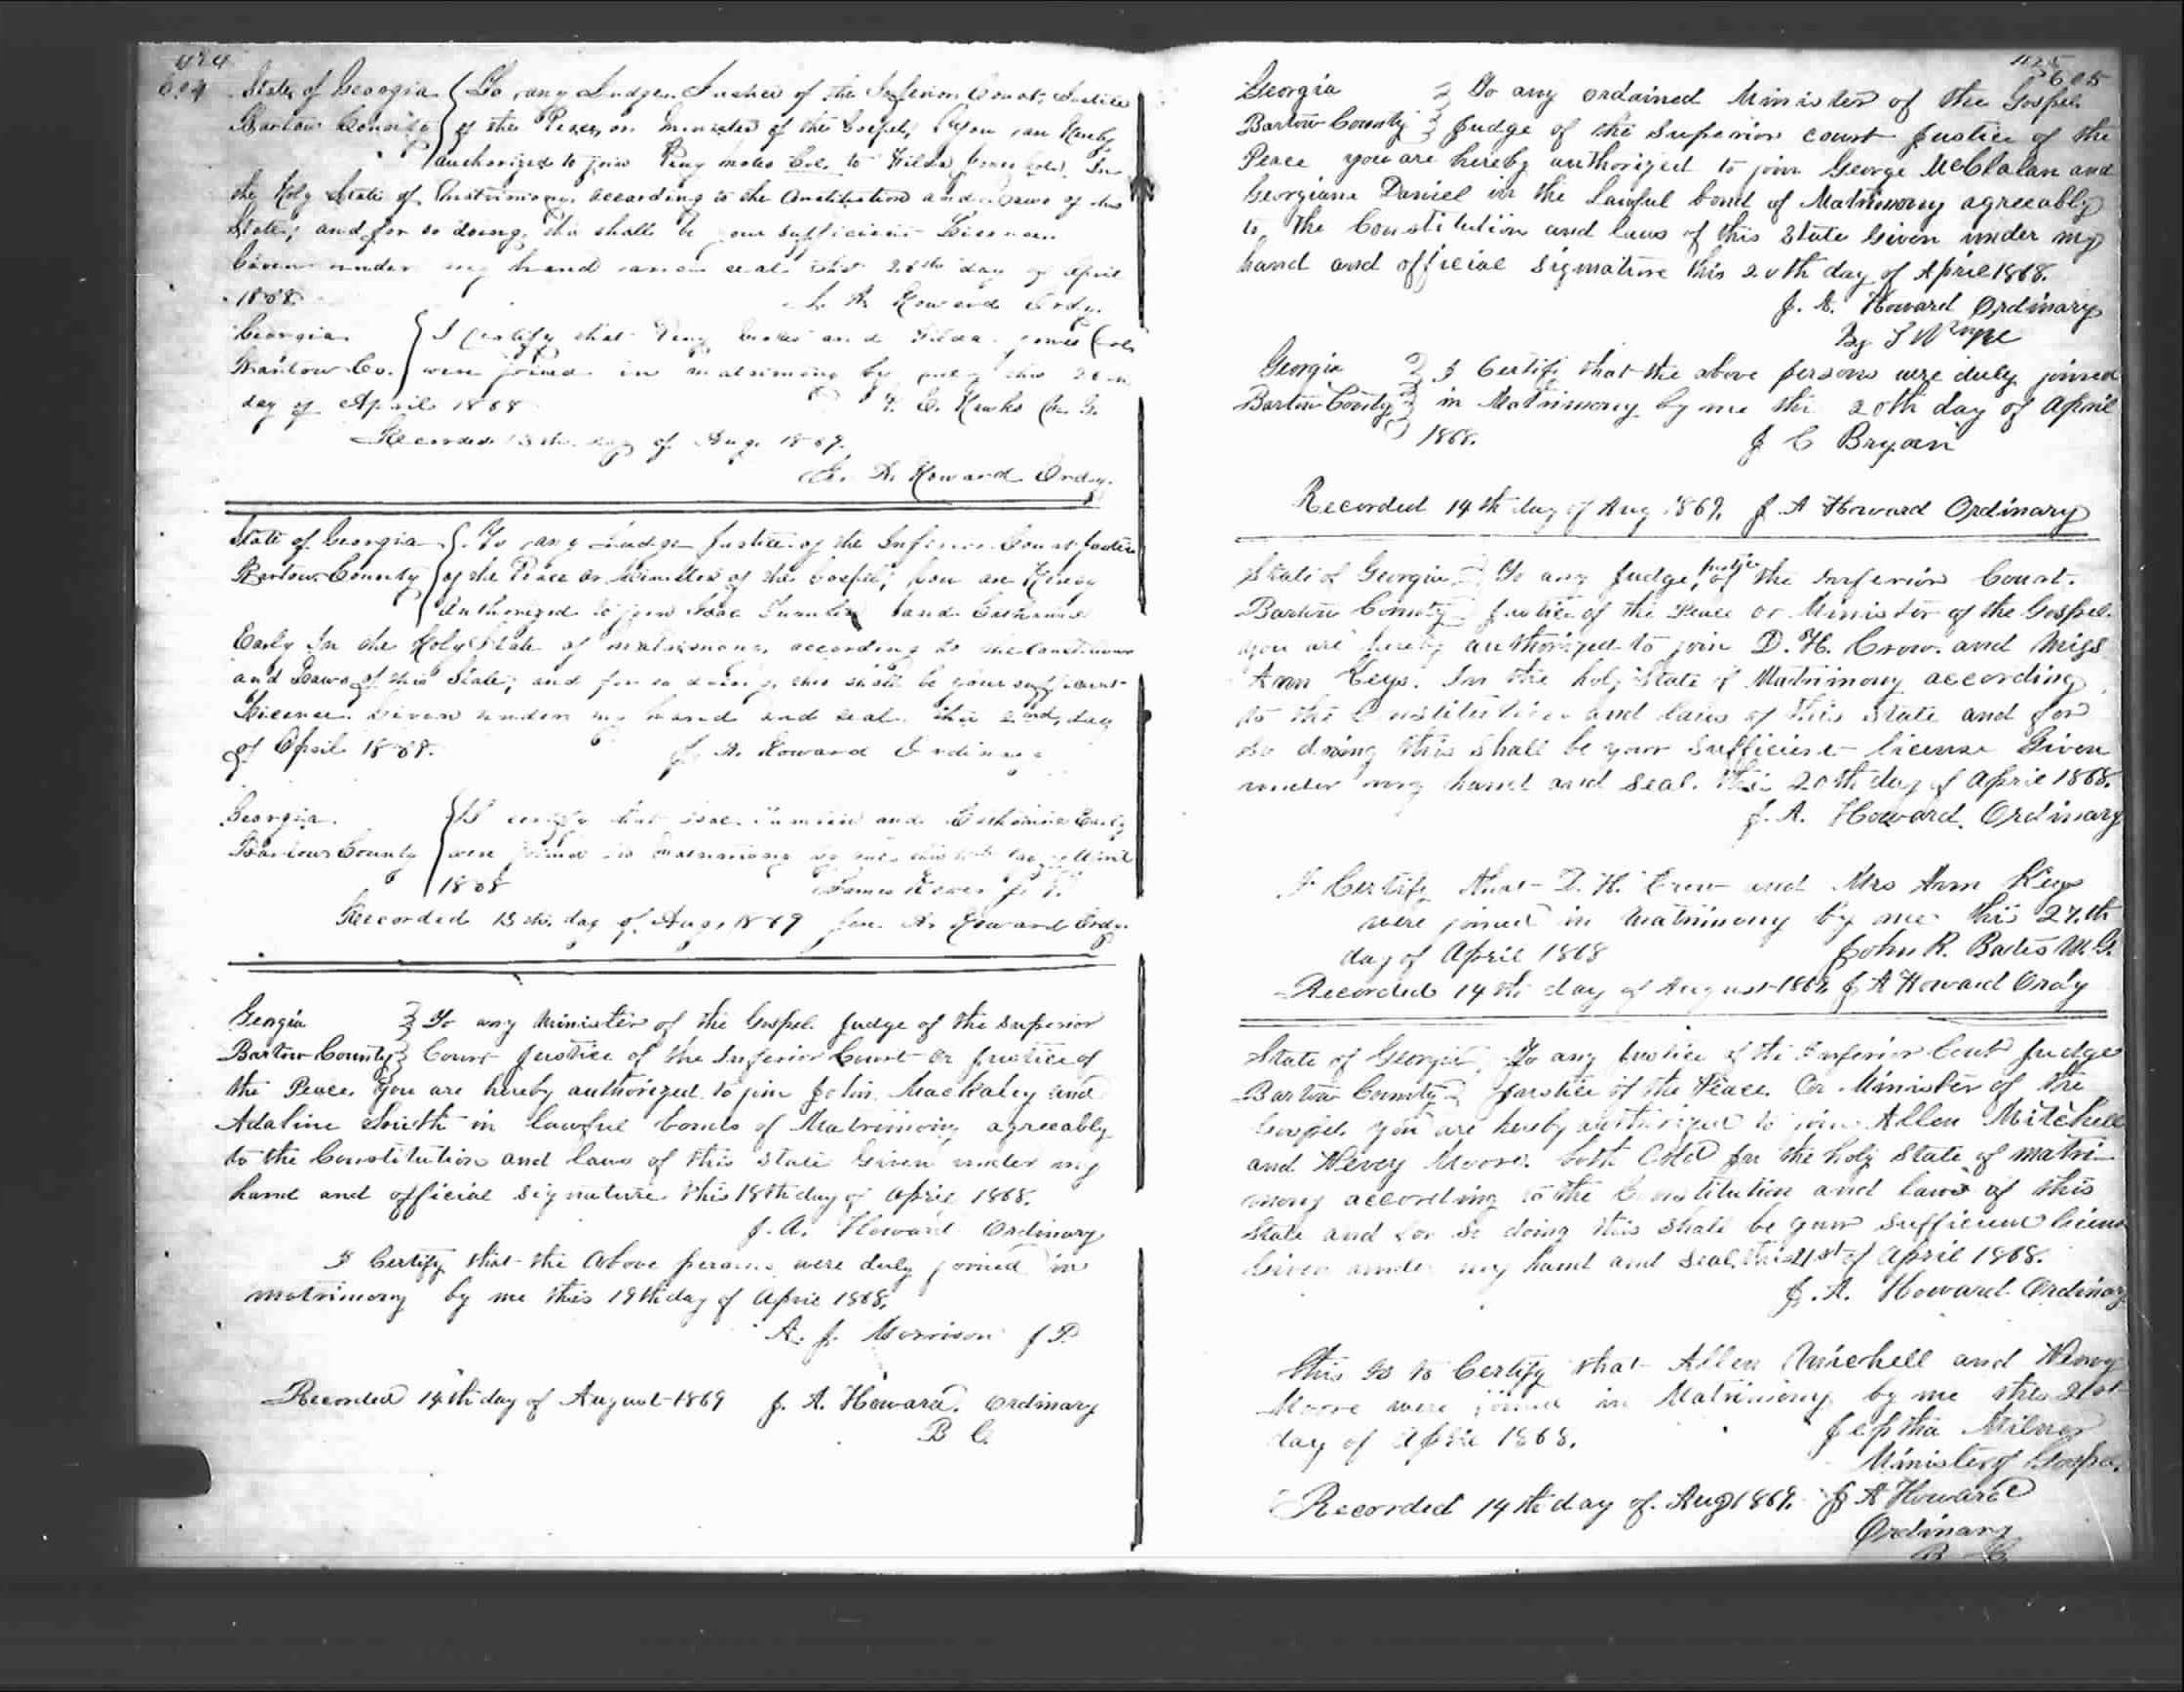 424
604
State of Georgia { To any Judge Justice of the Inferior Court, Justice
Bartow County { of the Peace, or Minister of the Gospel, You are Hereby
authorized to join Col. to Jones Col. In
the Holy State of Matrimony according to the Constitution and Laws of this
State; and for so doing this shall be your sufficient License.
Given under my hand and seal this 20th day of April
1868. J. A. Howard Ordy.
Georgia { I certify that and Jones (col
Bartow Co. { were joined in matrimony by me this
day of April 1868 Hawks M. G.
Recorded 13th day of Aug. 1869.
J. A. Howard Ordy.
State of Georgia { To any Judge Justice of the Inferior Court Justice
Bartow County { of the Peace or Minister of the Gospel; you are Hereby
Authorized to join Isac and Catharine
Early In the Holy State of matrimony, according to the Constitution
and Laws of this State; and for so doing, this shall be your sufficient
License. Given under my hand and seal this day
of April 1868. J. A. Howard Ordinary
Georgia. { I certify that Isac and Catharine Early
Bartow County { were joined in matrimony by me this day of April
1868 James J. P.
Recorded 13th day of Aug. 1869 J. A. Howard Ordy.
Geogia } To any Minister of the Gospel Judge of the Superior
Bartow County } Court Justice of the Inferior Court or Justice of
the Peace. You are hereby authorized to join John Mackaley and
Adaline Smith in lawful bonds of Matrimony agreeably
to the Constitution and laws of this State Given under my
hand and official signature this 18th day of April 1868.
J. A. Howard Ordinary
I Certify that the above persons were duly joined in
matrimony by me this 19th day of April 1868.
A. J. Morrison J P.
Recorded 14th day of August 1869 J. A. Howard. Ordinary
B C.
425
605
Georgia } To any ordained Minister of the Gospel
Bartow County } Judge of the Superior court Justice of the
Peace you are hereby authorized to join George McClalan and
Georgiana Daniel in the Lawful bond of Matrimony agreeably
to the Constitution and laws of this State Given under my
hand and official signature this 20th day of April 1868.
J. A. Howard Ordinary
By
Georgia } I Certify that the above persons were duly joined
Bartow County } in Matrimony by me this 20th day of April
1868. J C Bryan
Recorded 14th day of Aug 1869. J. A Howard Ordinary
State of Georgia } To any Judge, Justice of the Inferior Court.
Bartow County } Justice of the Peace or Minister of the Gospel.
you are hereby authorized to join D. H. Crow. and Miss
Ann Keys. In the holy State of Matrimony according
to the Constitution and laws of this State and for
so doing this shall be your sufficient license Given
under my hand and seal. this 20th day of April 1868.
J. A. Howard. Ordinary
I Certify that D. H. Crow and Mrs Ann Keys
were joined in Matrimony by me this 27th
day of April 1868 John R. Bates M. G.
Recorded 14th day of August 1869 J A Howard Ordy
State of Georgia } To any Justice of the Inferior Court Judge
Bartow County } Justice of the Peace. Or Minister of the
Gospel. you are hereby authorized to join Allen Mitchell
and Moore. both Cold In the holy State of matri-
mony according to the Constitution and laws of this
State and for so doing this shall be your sufficient license
Given under my hand and seal. this 21st of April 1868.
J. A. Howard Ordinary
This is to Certify that Allen Mitchell and
Moore were joined in Matrimony by me this 21st
day of April 1868. Jeptha Milner
Minister of Gospel.
Recorded 14th day of Aug 1869. J A Howard
Ordinary
B C